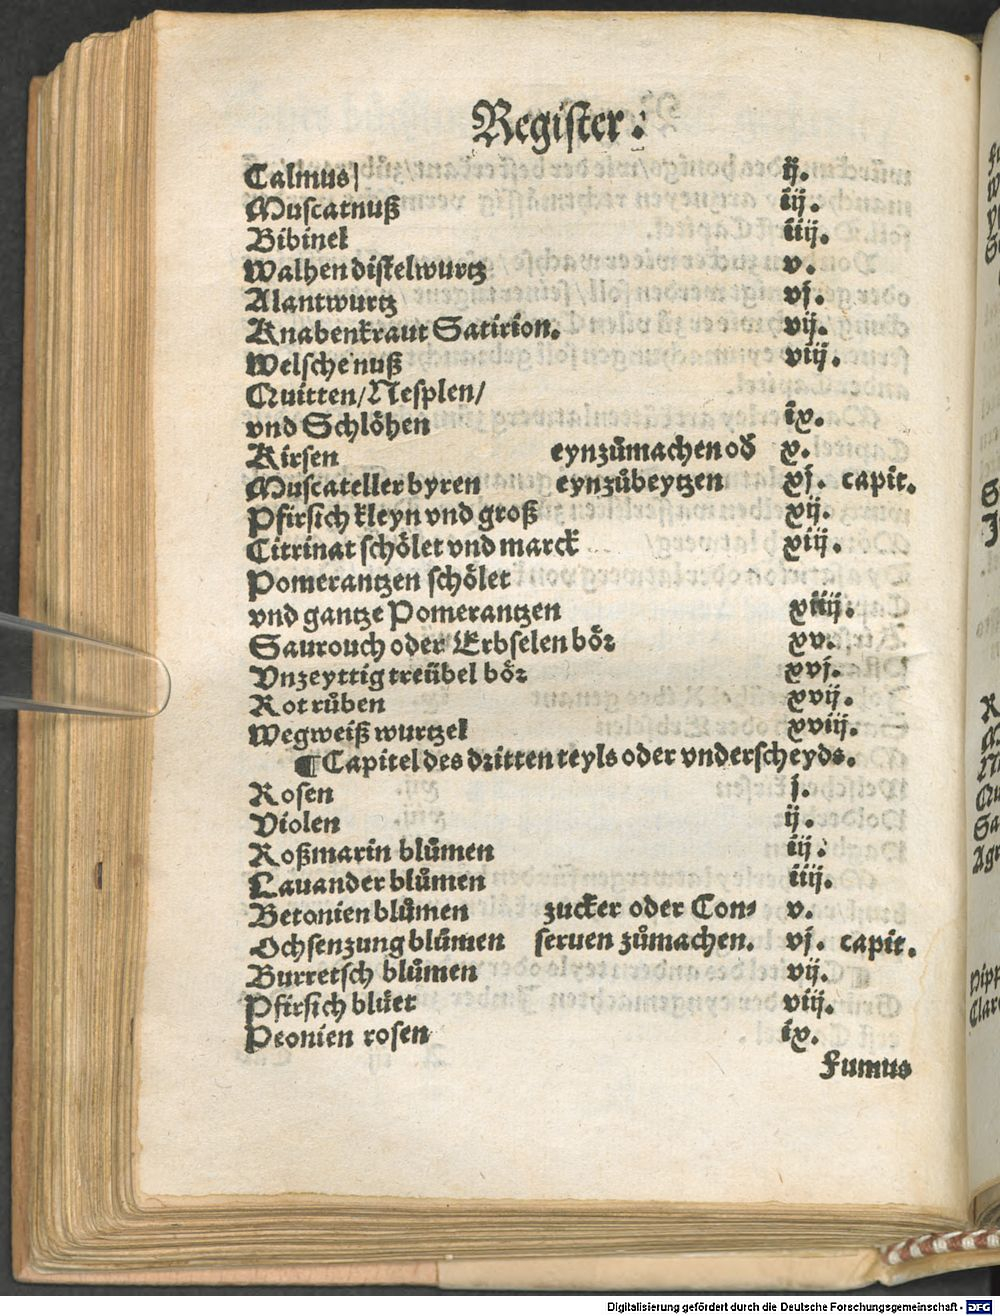 Register.
Calmus ij.
Muscatnuß iij.
Bibinel iiij.
Walhen distelwurtz v.
Alantwurtz vj.
Knabenkraut Satirion. vij.
Welsche nuß viij.
Quitten/Nesplen/
vnd Schlöhen ix.
Kirsen eynzůmachen od x.
Muscateller byren eynzůbeytzen xj. capit.
Pfirsich kleyn vnd groß xij.
Citrinat schölet vnd marck xiij.
Pomerantzen schölet
vnd gantze Pomerantzen xiiij.
Saurouch oder Erbselen bör xv.
Vnzeyttig treübel bör xvj.
Rot růben xvij.
Wegweiß wurtzel xviij.
¶Capitel des dritten teyls oder vnderscheyds.
Rosen j.
Violen ij.
Roßmarin blůmen iij.
Lauander blůmen iiij.
Betonien blůmen zucker oder Con= v.
Ochsenzung blůmen seruen zůmachen. vj. capit.
Burretsch blůmen vij.
Pfirsich blüet viij.
Peonien rosen ix.
Fumus
Digitalisierung gefördert durch die Deutsche Forschungsgemeinschaft - DFG